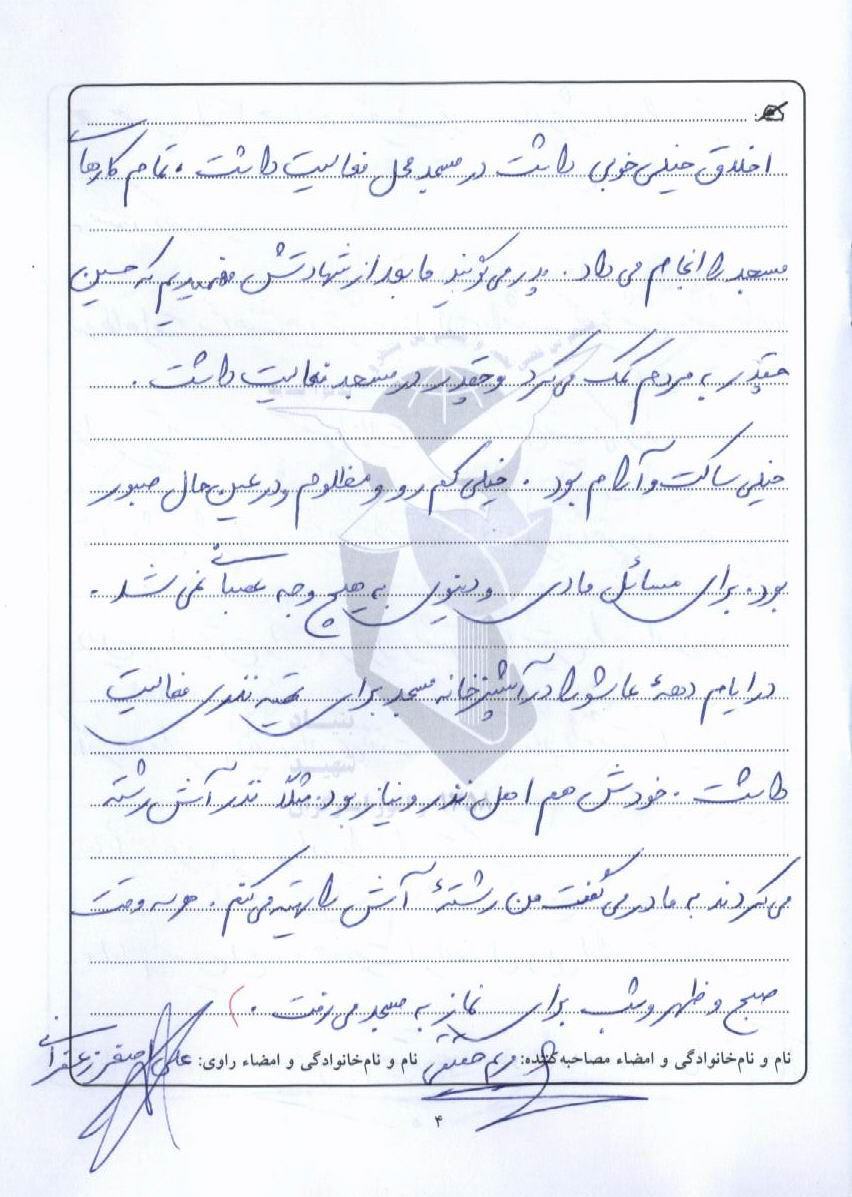 اخلاق خیلی خوبی داشت در مسجد محل فعالیت داشت . تمام کارهای
مسجد را انجام می داد . پدر می گویند ما بعد از شهادتش فهمیدیم که حسین
چقدر به مردم کمک می کرد و چقدر در مسجد فعالیت داشت .
خیلی ساکت و آرام بود . خیلی کم رو و مظلوم و در عین حال صبور
بود . برای مسائل مادی و دنیوی به هیچ وجه عصبانی نمی شد .
در ایام دههٔ عاشورا در آشپزخانه مسجد برای تهیه نذری فعالیت
داشت . خودش هم اهل نذر و نیاز بود . مثلاً نذر آش رشته
می کردند به مادر می گفت من رشتهٔ آش را تهیه می کنم . هر سه وقت
صبح و ظهر و شب برای نماز به مسجد می رفت .
نام و نام‌خانوادگی و امضاء مصاحبه‌کننده: مریم حقیقی نام و نام‌خانوادگی و امضاء راوی: علی اصغر زعفرانی
بنیاد
شهید
۴